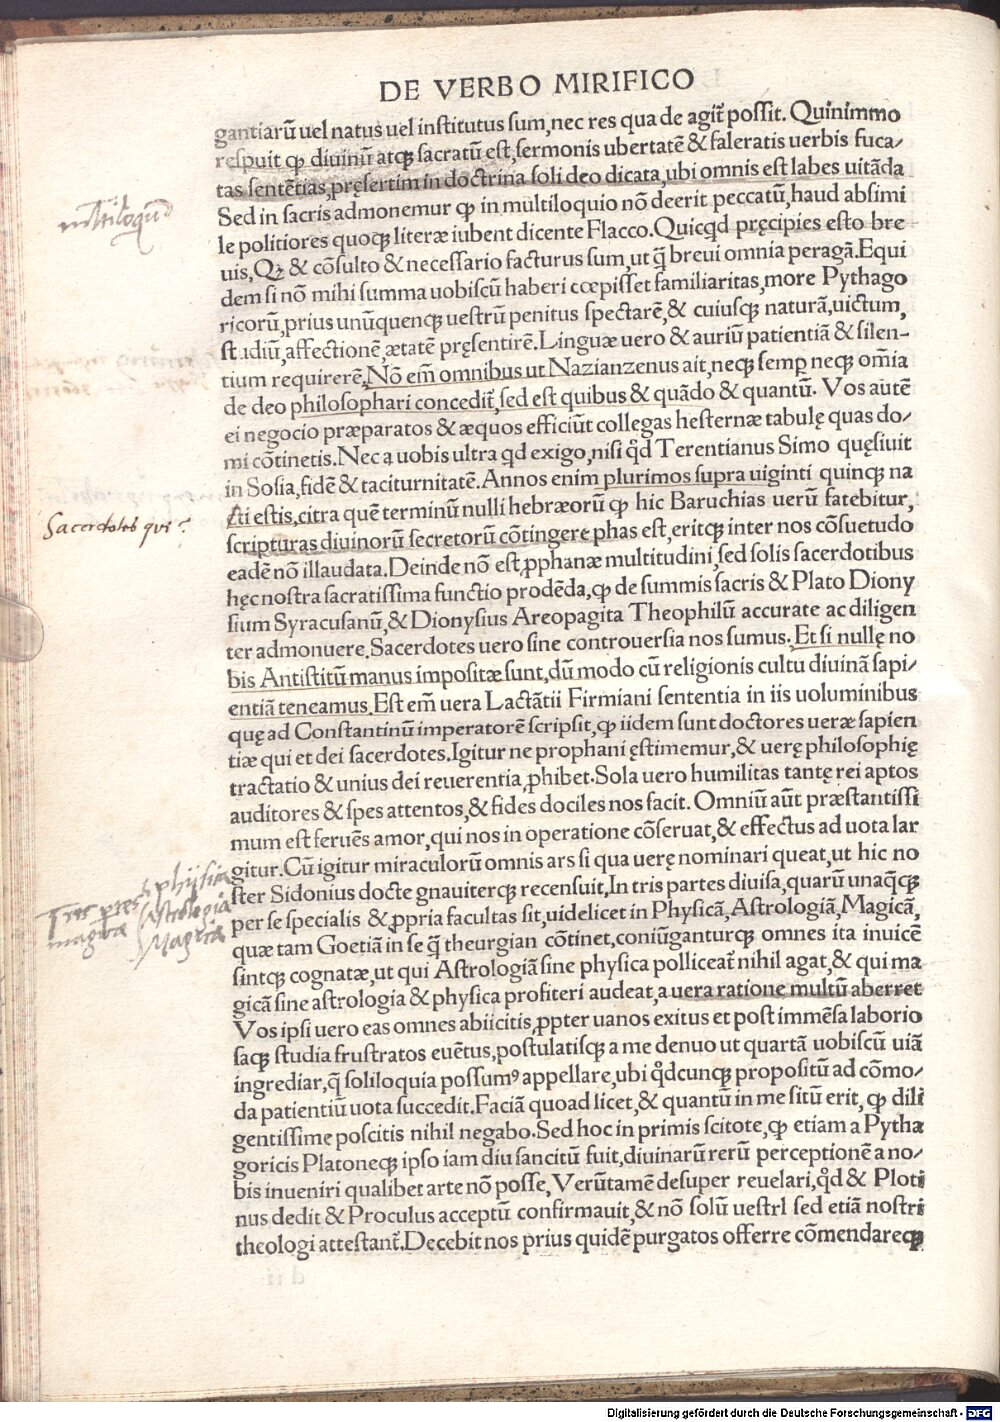 DE VERBO MIRIFICO
gantiarū uel natus uel institutus sum,nec res qua de agit̃ possit. Quinimmo
respuit ꝙ diuinū atqꝫ sacratū est,sermonis ubertatē & faleratis uerbis fuca/
tas sentētias,pręsertim in doctrina soli deo dicata,ubi omnis est labes uitāda
Sed in sacris admonemur ꝙ in multiloquio nō deerit peccatū,haud absimi
le politiores quoqꝫ literæ iubent dicente Flacco.Quicqd pręcipies esto bre
uis,Qꝫ & cōsulto & necessario facturus sum,ut q̄ breui omnia peragā.Equi
dem si nō mihi summa uobiscū haberi cœpisset familiaritas,more Pythago
ricorū,prius unūquenqꝫ uestrū penitus spectarē,& cuiusqꝫ naturā,uictum,
studiū,affectionē,ætatē pręsentirē.Linguæ uero & auriū patientiā & silen-
tium requirerē.Nō em̄ omnibus ut Nazianzenus ait,neqꝫ semꝑ neqꝫ om̄ia
de deo philosophari concedit̃,sed est quibus & quādo & quantū. Vos autē
ei negocio præparatos & æquos efficiūt collegas hesternæ tabulę quas do/
mi cōtinetis.Nec a uobis ultra qd exigo,nisi qd Terentianus Simo quęsiuit
in Sosia,fidē & taciturnitatē.Annos enim plurimos supra uiginti quinqꝫ na
cti estis,citra quē terminū nulli hebræorū ꝙ hic Baruchias uerū fatebitur,
scripturas diuinorū secretorū cōtingere phas est,eritqꝫ inter nos cōsuetudo
eadē nō illaudata.Deinde nō est ꝓphanæ multitudini,sed solis sacerdotibus
hęc nostra sacratissima functio prodēda,ꝙ de summis sacris & Plato Diony
sium Syracusanū,& Dionysius Areopagita Theophilū accurate ac diligen
ter admonuere.Sacerdotes uero sine controuersia nos sumus.Et si nullę no
bis Antistitū manus impositæ sunt,dū modo cū religionis cultu diuinā sapi/
entiā teneamus.Est em̄ uera Lactātii Firmiani sententia in iis uoluminibus
quę ad Constantinū imperatorē scripsit,ꝙ iidem sunt doctores ueræ sapien
tiæ qui et dei sacerdotes.Igitur ne prophani ęstimemur,& uerę philosophię
tractatio & unius dei reuerentia ꝓhibet.Sola uero humilitas tantę rei aptos
auditores & spes attentos,& fides dociles nos facit. Omniū aūt præstantissi
mum est feruēs amor,qui nos in operatione cōseruat,& effectus ad uota lar
gitur.Cū igitur miraculorū omnis ars si qua uerę nominari queat,ut hic no
ster Sidonius docte gnauiterqꝫ recensuit,In tris partes diuisa,quarū unaq̄qꝫ
per se specialis & ꝓpria facultas sit,uidelicet in Physicā,Astrologiā,Magicā,
quæ tam Goetiā in se q̄ theurgian cōtinet,coniūganturqꝫ omnes ita inuicē
sintqꝫ cognatæ,ut qui Astrologiā sine physica polliceat̃ nihil agat,& qui ma
gicā sine astrologia & physica profiteri audeat,a uera ratione multū aberret
Vos ipsi uero eas omnes abiicitis,ꝓpter uanos exitus et post immēsa laborio
saqꝫ studia frustratos euētus,postulatisqꝫ a me denuo ut quartā uobiscū uiā
ingrediar,q̄ soliloquia possumꝰ appellare,ubi qdcunqꝫ propositū ad cōmo/
da patientiū uota succedit.Faciā quoad licet,& quantū in me sitū erit,ꝙ dili
gentissime poscitis nihil negabo.Sed hoc in primis scitote,ꝙ etiam a Pytha
goricis Platoneqꝫ ipso iam diu sancitū fuit,diuinarū rerū perceptionē a no/
bis inueniri qualibet arte nō posse,Verūtamē desuper reuelari,qd & Ploti
nus dedit & Proculus acceptū confirmauit,& nō solū uestri sed etiā nostri
theologi attestant̃.Decebit nos prius quidē purgatos offerre cōmendareqꝫ
multiloquiū
Sacerdotes qui?
Tres partes
magiæ
physica
Astrologia
Magica
Digitalisierung gefördert durch die Deutsche Forschungsgemeinschaft - DFG